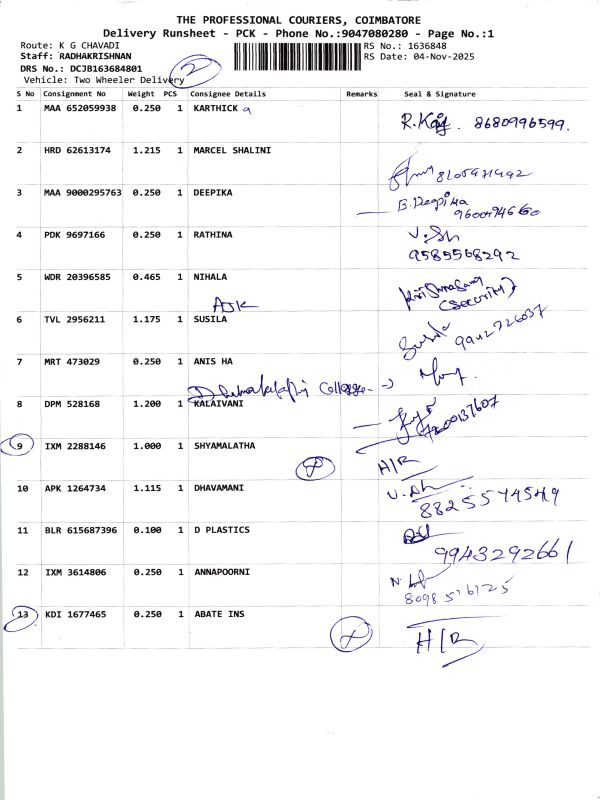 THE PROFESSIONAL COURIERS, COIMBATORE
Delivery Runsheet - PCK - Phone No.:9047080280 - Page No.:1
Route: K G CHAVADI RS No.: 1636848
Staff: RADHAKRISHNAN RS Date: 04-Nov-2025
DRS No.: DCJB163684801 2
Vehicle: Two Wheeler Delivery
S No Consignment No Weight PCS Consignee Details Remarks Seal & Signature
1 MAA 652059938 0.250 1 KARTHICK a
8680996599.
2 HRD 62613174 1.215 1 MARCEL SHALINI
3 MAA 9000295763 0.250 1 DEEPIKA
B.Deepika
4 PDK 9697166 0.250 1 RATHINA
9585568292
5 WDR 20396585 0.465 1 NIHALA
(Security)
6 TVL 2956211 1.175 1 SUSILA
9942726037
7 MRT 473029 0.250 1 ANIS HA
College
8 DPM 528168 1.200 1 KALAIVANI
9 IXM 2288146 1.000 1 SHYAMALATHA
H/R
10 APK 1264734 1.115 1 DHAVAMANI
8825574549
11 BLR 615687396 0.100 1 D PLASTICS
9943292661
12 IXM 3614806 0.250 1 ANNAPOORNI
13 KDI 1677465 0.250 1 ABATE INS
H/R